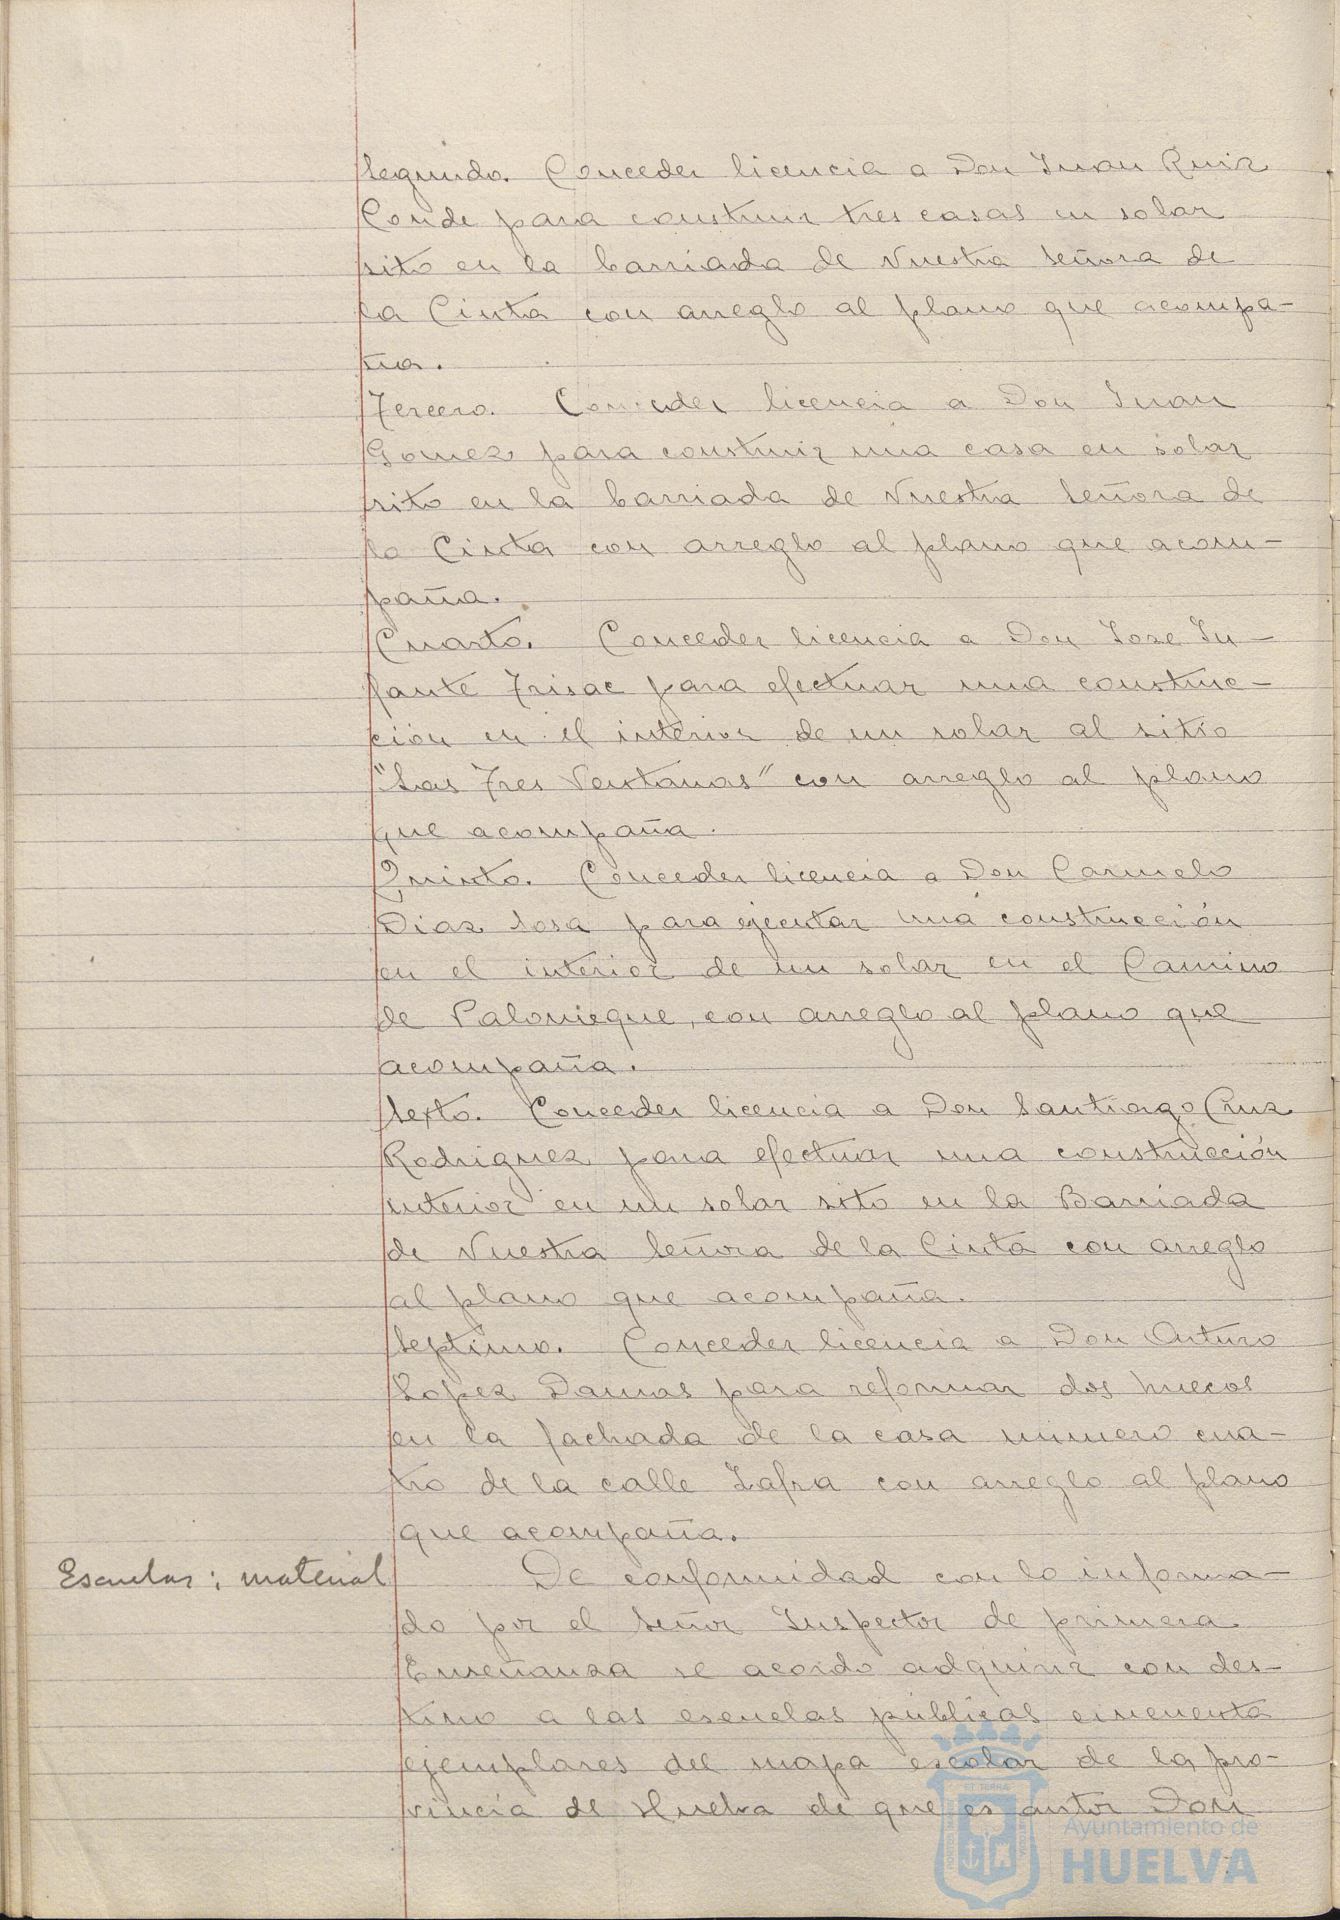 Segundo. Conceder licencia a Don Juan Ruiz
Conde para construir tres casas en solar
sito en la barriada de Nuestra Señora de
la Cinta con arreglo al plano que acompa-
ña.
Tercero. Conceder licencia a Don Juan
Gomez para construir una casa en solar
sito en la barriada de Nuestra Señora de
la Cinta con arreglo al plano que acom-
paña.
Cuarto. Conceder licencia a Don Jose In-
fante Trisac para efectuar una construc-
ción en el interior de un solar al sitio
"Las Tres Ventanas" con arreglo al plano
que acompaña.
Quinto. Conceder licencia a Don Carmelo
Diaz Sosa para ejecutar una construcción
en el interior de un solar en el Camino
de Palomeque, con arreglo al plano que
acompaña.
Sexto. Conceder licencia a Don Santiago Cruz
Rodriguez para efectuar una construcción
interior en un solar sito en la Barriada
de Nuestra Señora de la Cinta con arreglo
al plano que acompaña.
Septimo. Conceder licencia a Don Arturo
Lopez Damas para reformar dos huecos
en la fachada de la casa numero cua-
tro de la calle Zafra con arreglo al plano
que acompaña.
Escuelas: material
De conformidad con lo informa-
do por el Señor Inspector de primera
Enseñanza se acordo adquirir con des-
tino a las escuelas públicas cincuenta
ejemplares del mapa escolar de la pro-
vincia de Huelva de que es autor Don
Ayuntamiento de
HUELVA